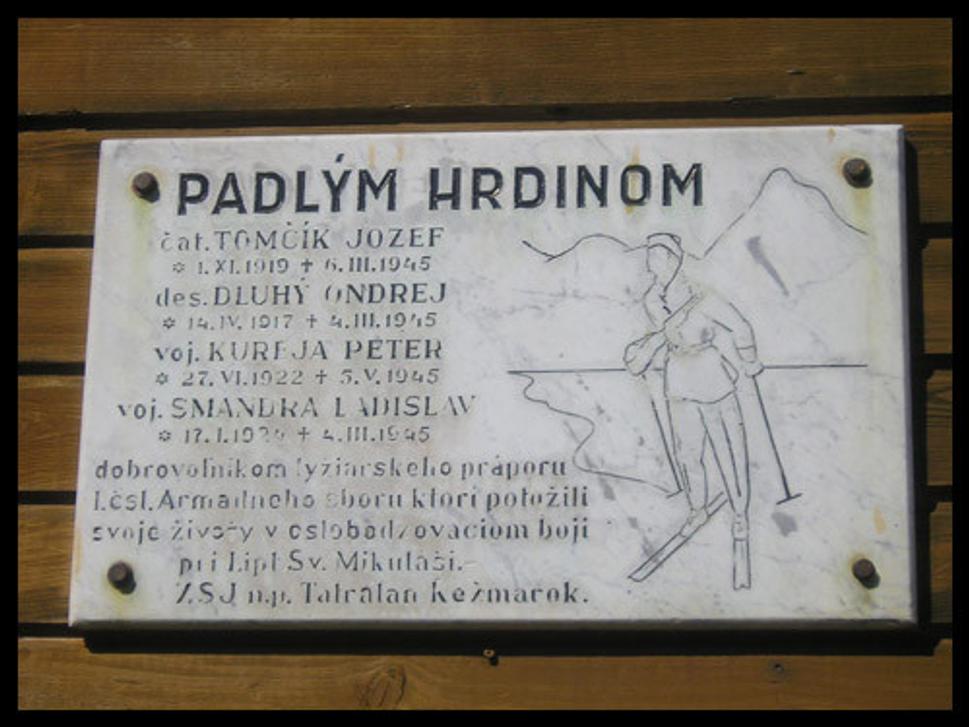 PADLÝM HRDINOM
čat. TOMČÍK JOZEF
✡ 1. XI. 1919 ✝ 6. III. 1945
des. DLUHÝ ONDREJ
✡ 14. IV. 1917 ✝ 4. III. 1945
voj. KUREJA PETER
✡ 27. VI. 1922 ✝ 5. V. 1945
voj. SMANDRA LADISLAV
✡ 17. I. ✝ 4. III. 1945
dobrovoľníkom lyžiarskeho práporu
I. čsl. Armádneho sboru ktorí položili
svoje životy v oslobodzovaciom boji
pri Lipt. Sv. Mikuláši.-
ZSJ n.p. Tatraľan Kežmarok.